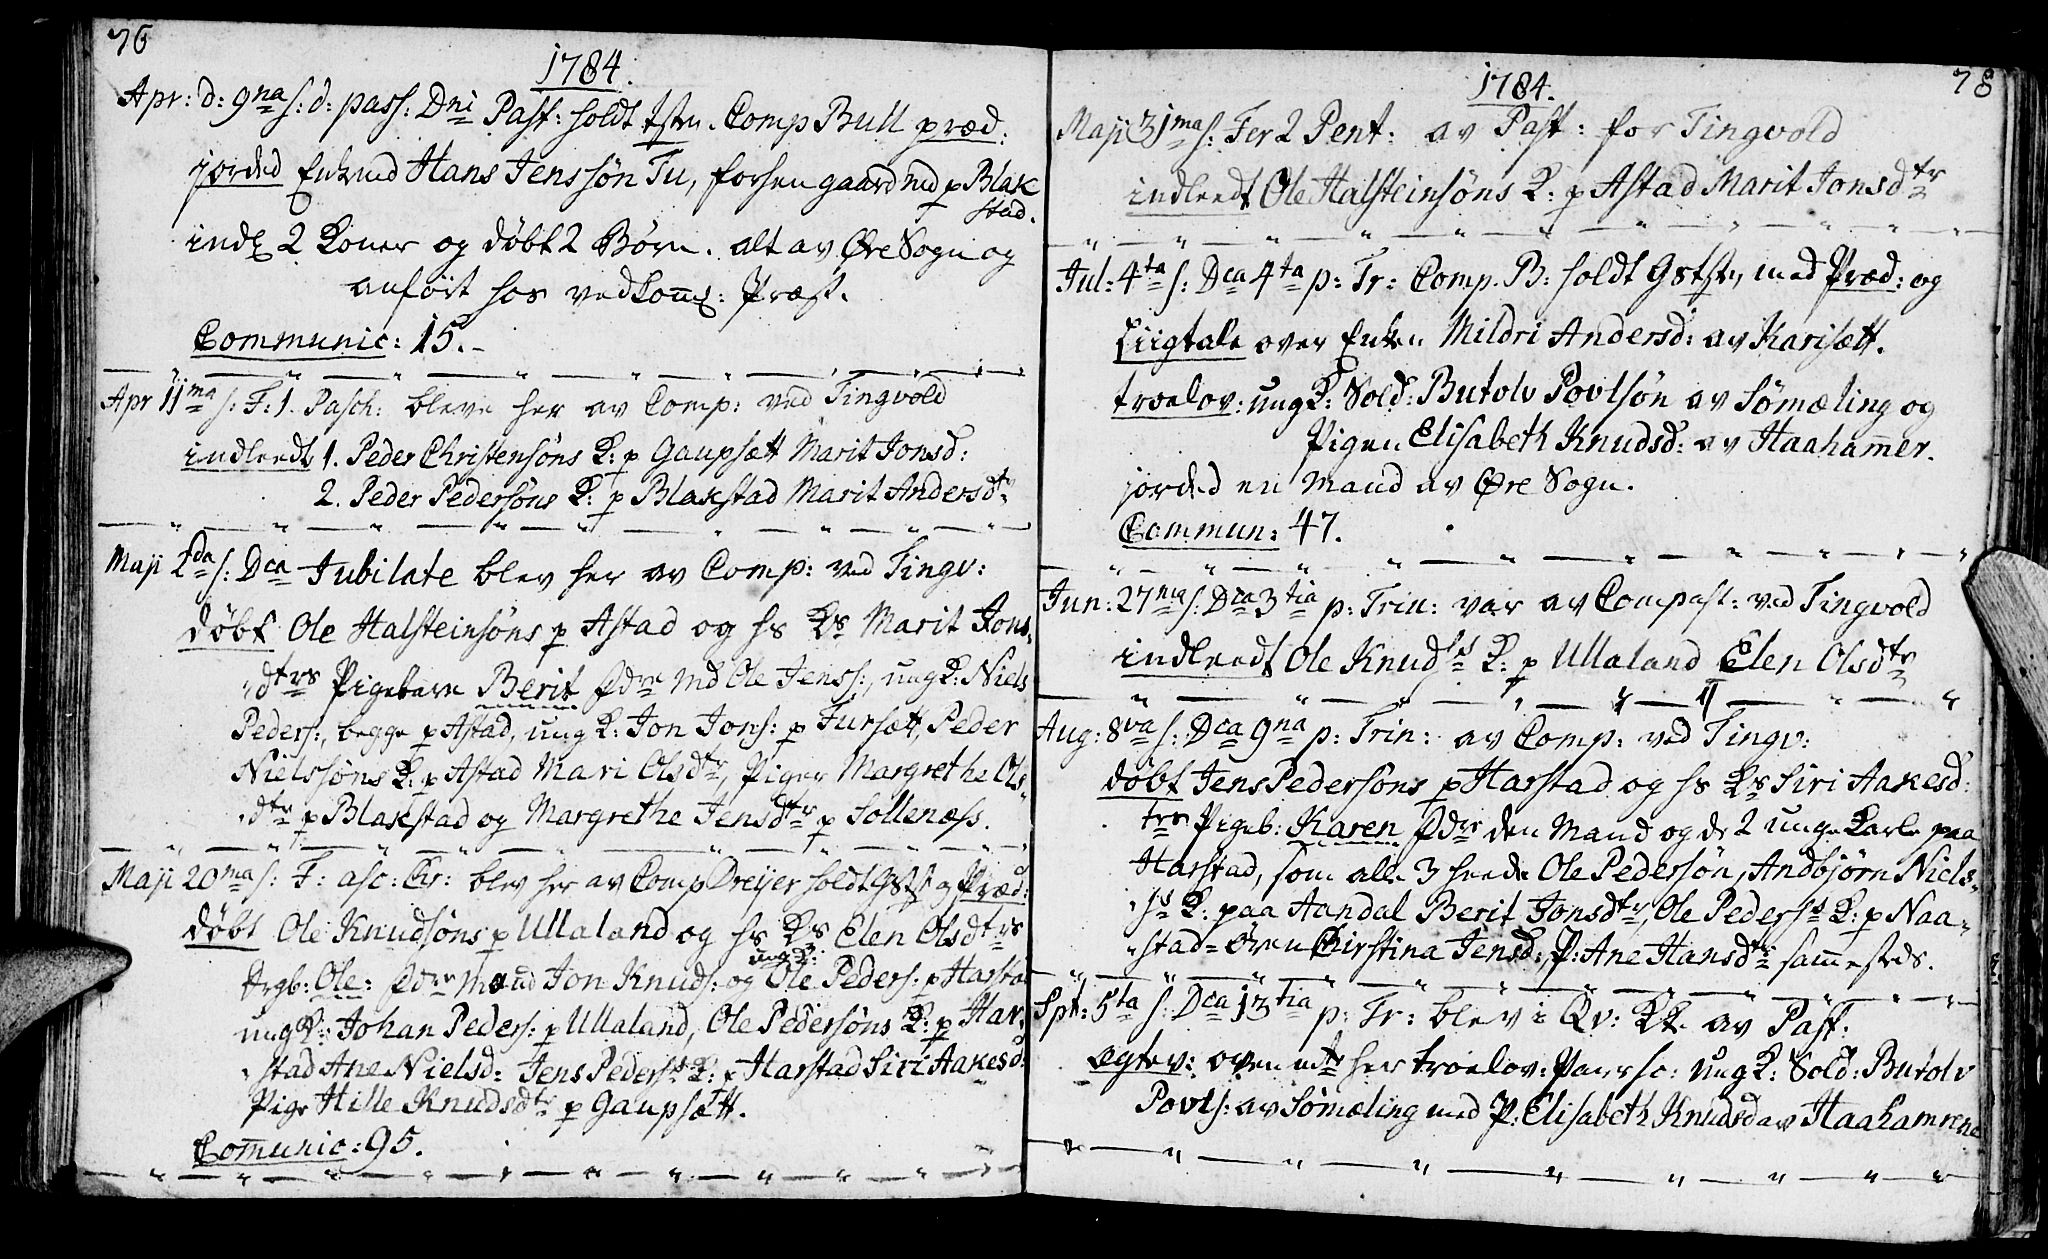 76
1784.
Apr: d: 9na s: d: pass: Dni Past: holdt tstn. Comp Bull præd:
jorded Enkmd Hans Jenssön Tu, forhen gaardmd p Blak
stad.
indl 2 Koner og döbt 2 Börn. alt av Øre Sogn og
anfört hos vedkom: Præst.
Communic: 15.
Apr 11ma s: F: 1. Pasch: bleve her av Comp: ved Tingvold
indleedt 1. Peder Christensöns K: p Gaupsætt Marit Jonsd:
2. Peder Pedersöns K: p Blakstad Marit Andersdtr
Maji 2da s: Dca Jubilate blev her av Comp: ved Tingv:
döbt Ole Halsteinsöns p Astad og hs Ks Marit Jons
dtrs Pigebarn Berit Fdre Md Ole Jens:, ungK: Niels
Peders:, begge p Astad, ungK: Jon Jons: p Fursætt, Peder
Nielssöns K: p Astad Mari Olsdtr, Piger Margrethe Ols
dtr p Blakstad og Margrethe Jensdtr p Sollenæss.
Maji 20ma s: F: asc: Chr: blev her av Comp Dreijer holdt Gstst og Præd:
döbt Ole Knudsöns p Ullaland og hs Ks Elen Olsdtrs
ungK:
Drgb: Ole: Fdre Mand Jon Knuds: og Ole Peders: p Harsta
ungK: Johan Peders: p Ullaland, Ole Pedersöns K: p Har
stad Ane Nielsd: Jens Peders K: p Harstad Siri Aakesd:
Pige Hille Knudsdtr p Gaupsætt.
Comunic: 95.
78
1784.
Maji 31ma s: Fer 2 Pent: av Past: for Tingvold
indleedt Ole Halsteinsöns K: p Astad Marit Jonsdtr
Jul: 4ta s: Dca 4ta p: Tr: Comp. B: holdt Gstst, med Præd: og
Liigtale over Enken Mildri Andersd: av Karisætt.
troelov: ungK: Sold: Butolv Povlsön av Sömæling og
Pigen Elisabeth Knudsd: av Haahamer.
jorded en Mand av Øre Sogn.
Commun: 47.
Jun: 27ma s: Dca 3tia p: Trin: var av Compast: ved Tingvold
indleedt Ole Knuds K: p Ullaland Elen Olsdtr
Aug: 8va s: Dca 9na p: Trin: av Comp: ved Tingv:
döbt Jens Pedersöns p Harstad og hs Ks Siri Aakesd:
trs Pigeb: Karen Fdre den Mand og de 2 unge Karle paa
Harstad, som alle 3 heede Ole Pedersön, Andbjörn Niels
s K: paa Aandal Berit Jonsdtr, Ole Peders K: p Naa
stad-Øven Chirstina Jensd:, P: Ane Hansdtr sammesteds.
Spt: 5ta s: Dca 13tia p: Tr: blev i Qv: Kk. av Past:
Egtev: ovenmte her troelov: Parso: ungK: Sold: Butolv
Povls: av Sömæling med P: Elisabeth Knudsd av Haahamrene